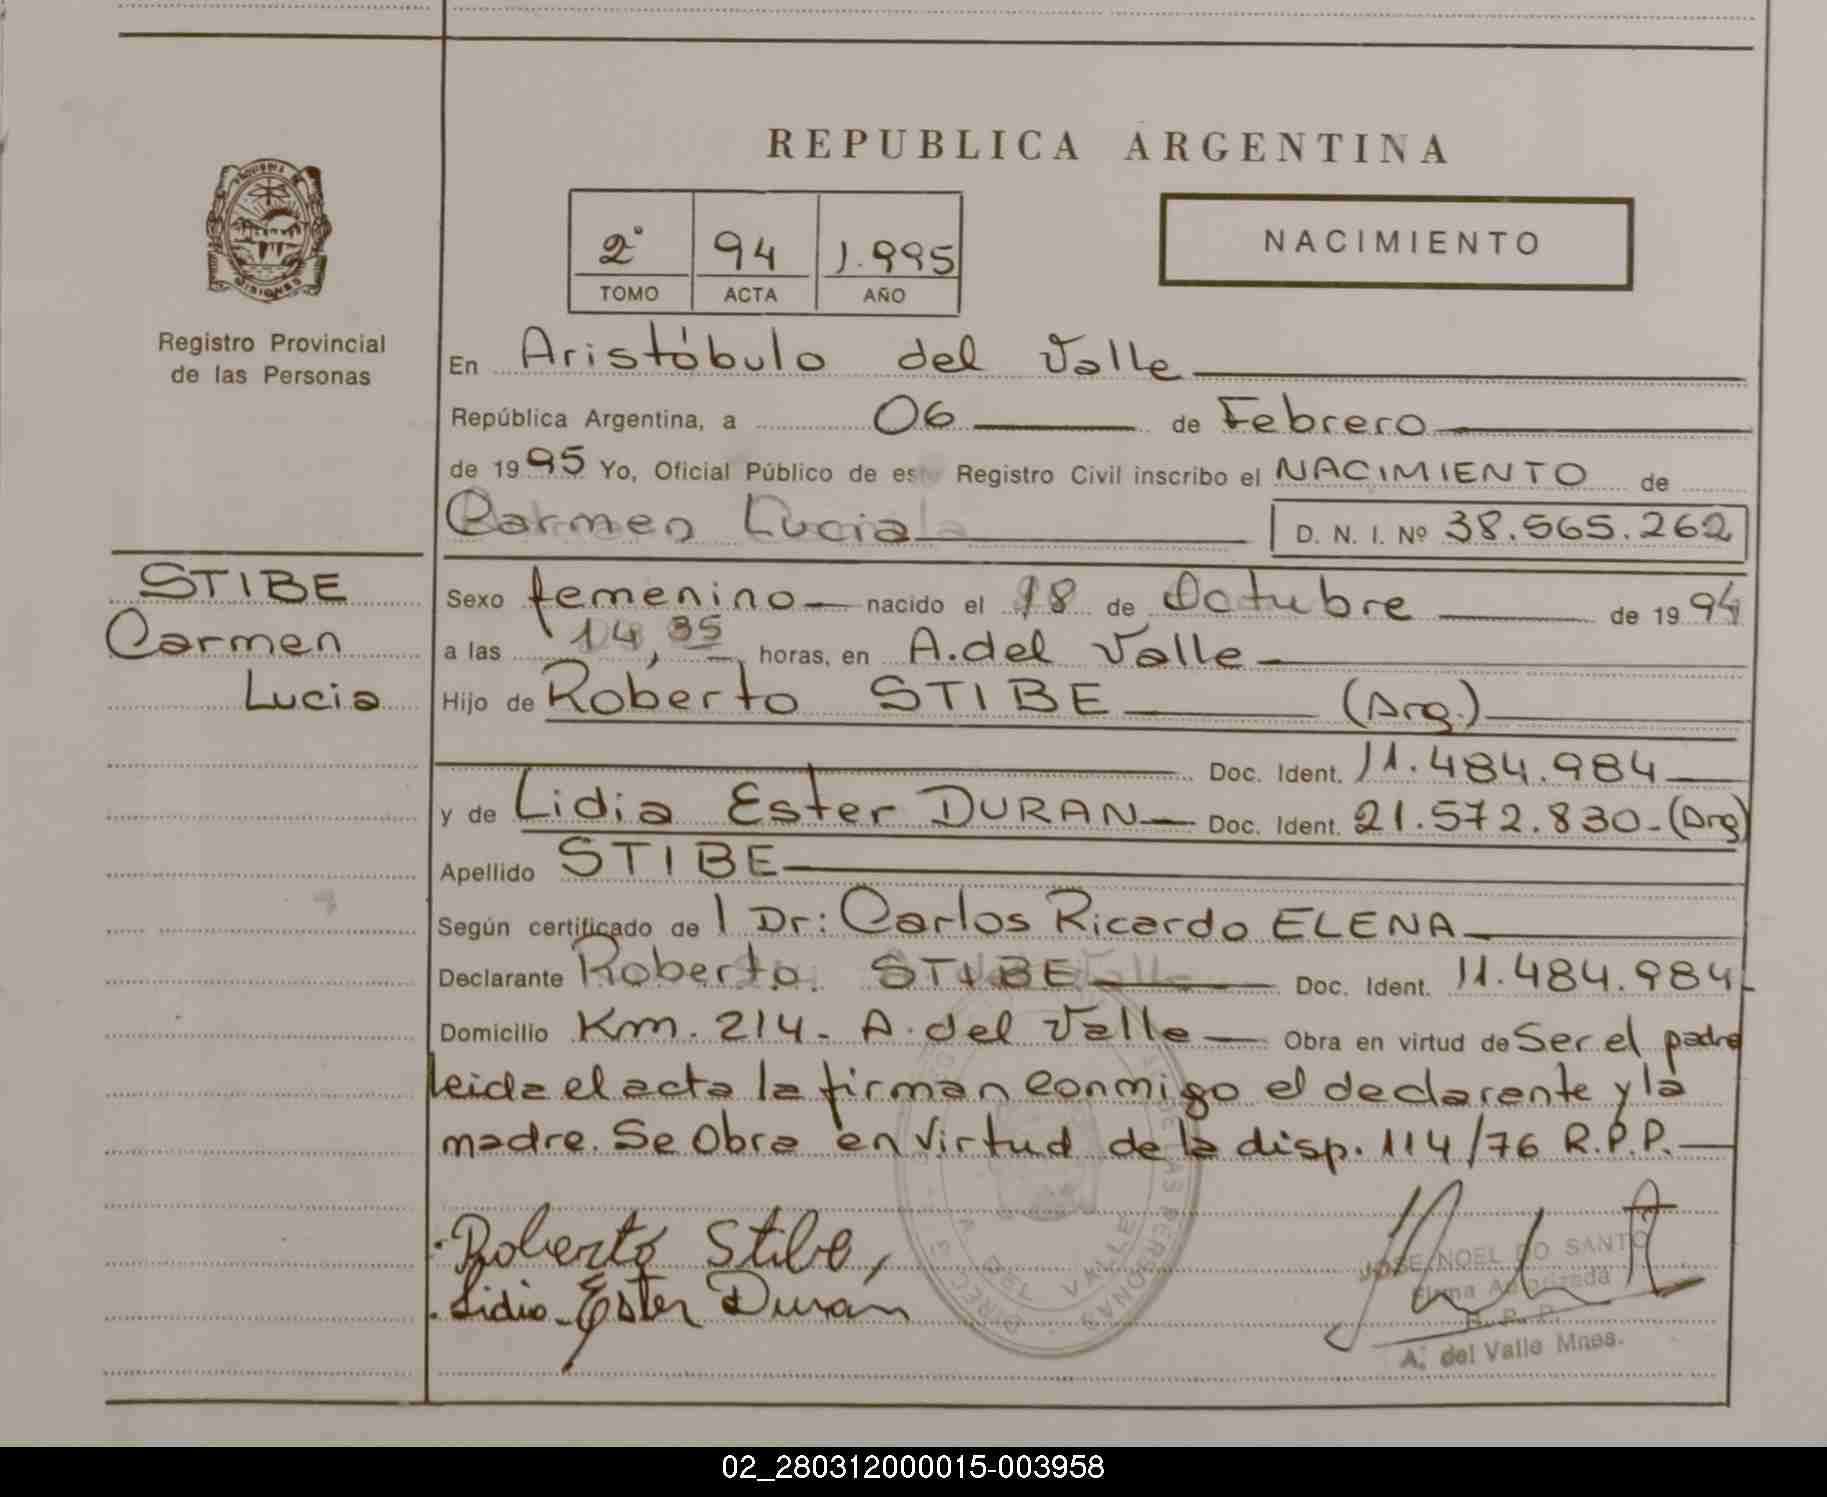 REPUBLICA ARGENTINA
2° 94 1.995
TOMO ACTA AÑO
NACIMIENTO
MISIONES
Registro Provincial
de las Personas
En Aristóbulo del Valle
República Argentina, a 06 de Febrero
de 1995 Yo, Oficial Público de este Registro Civil inscribo el NACIMIENTO de
Carmen Lucia D. N. I. Nº 38.565.262
STIBE
Carmen
Lucia
Sexo femenino nacido el 18 de Octubre de 1994
a las 14,35 horas, en A.del Valle
Hijo de Roberto STIBE (Arg.)
Doc. Ident. 11.484.984
y de Lidia Ester DURAN Doc. Ident. 21.572.830-(Arg)
Apellido STIBE
Según certificado de l Dr: Carlos Ricardo ELENA
Declarante Roberto STIBE Doc. Ident. 11.484.984
Domicilio Km. 214- A. del Valle Obra en virtud de Ser el padre
leida el acta la firman conmigo el declarante y la
madre. Se Obra en virtud de la disp. 114/76 R.P.P.
Roberto Stibe,
Lidia Ester Duran
JOSE NOEL DO SANTO
Firma Autorizada
R. P. P.
A. del Valle Mnes.
02_280312000015-003958